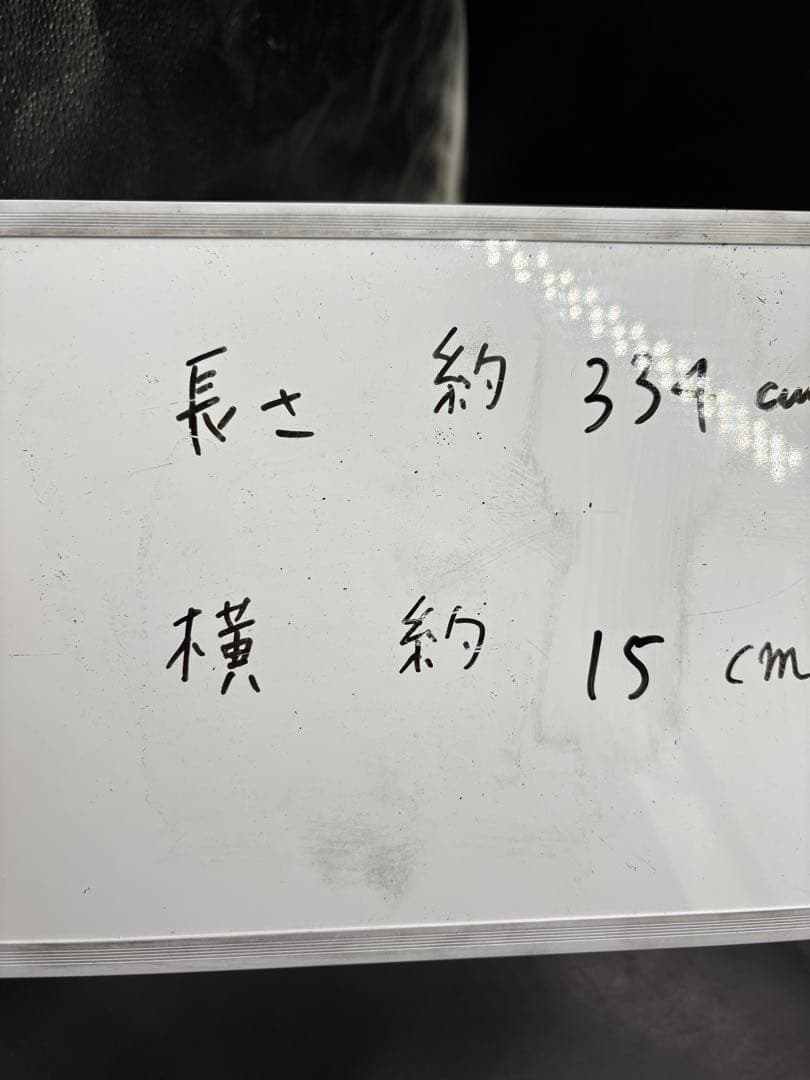 長さ 約 334 cm
横 約 15 cm